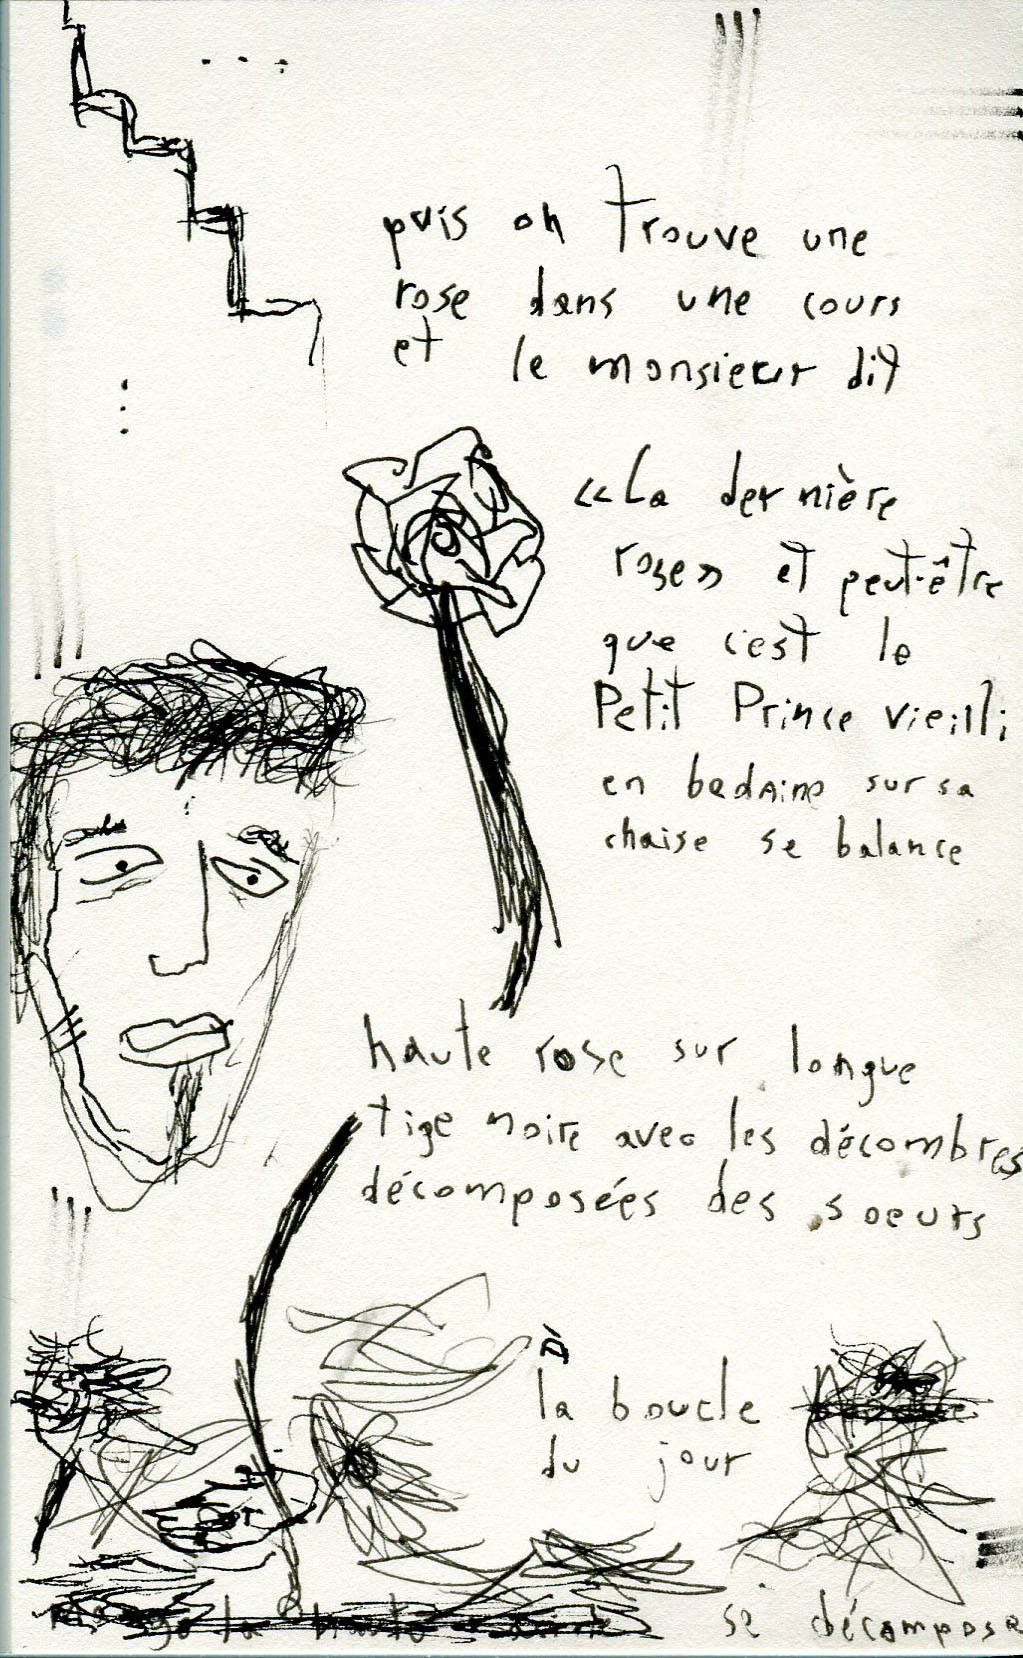 puis on trouve une
rose dans une cours
et le monsieur dit
«La dernière
rose» et peut-être
que c'est le
Petit Prince vieilli
en bedaine sur sa
chaise se balance
haute rose sur longue
tige noire avec les décombres
décomposées des soeurs
À
la boucle
du jour
se décompose